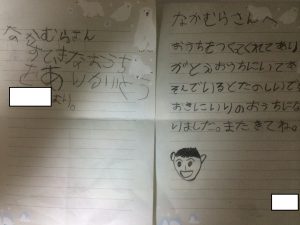 なかむらさん
すてきなおうち
をありがとう
より。
なかむらさんへ
おうちをつくてくれてあり
がとうおうちにいてあ
そんでいるとたのしいです
おきにいりのおうちにな
りました。またきてね。